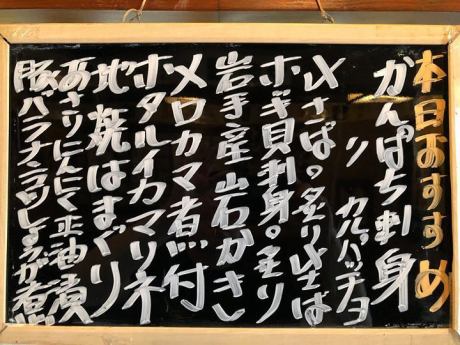 本日おすすめ
かんぱち刺身
〃 カルパッチョ
〆さば。炙り〆さば
ホッキ貝刺身。炙り
岩手産 岩石かき
メロカマ煮付
ホタルイカマリネ
地焼はまぐり
あさりにんにく正油煮
豚バラナンコツしょうが煮